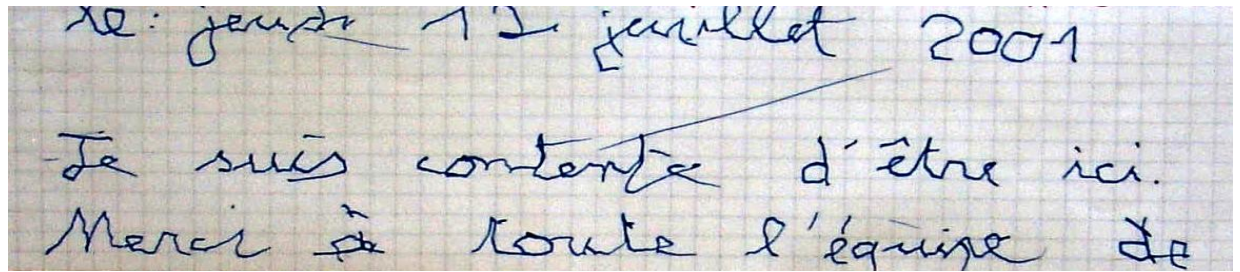 le: jeudi 12 juillet 2001
Je suis contente d'être ici.
Merci à toute l'équipe de